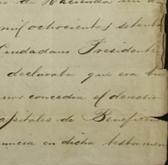 de Hacienda en
mil ochocientos setenta
Ciudadano Presidente
declaraba que era
concedia el derecho
apitales de Beneficen
uncia en dicho testamen